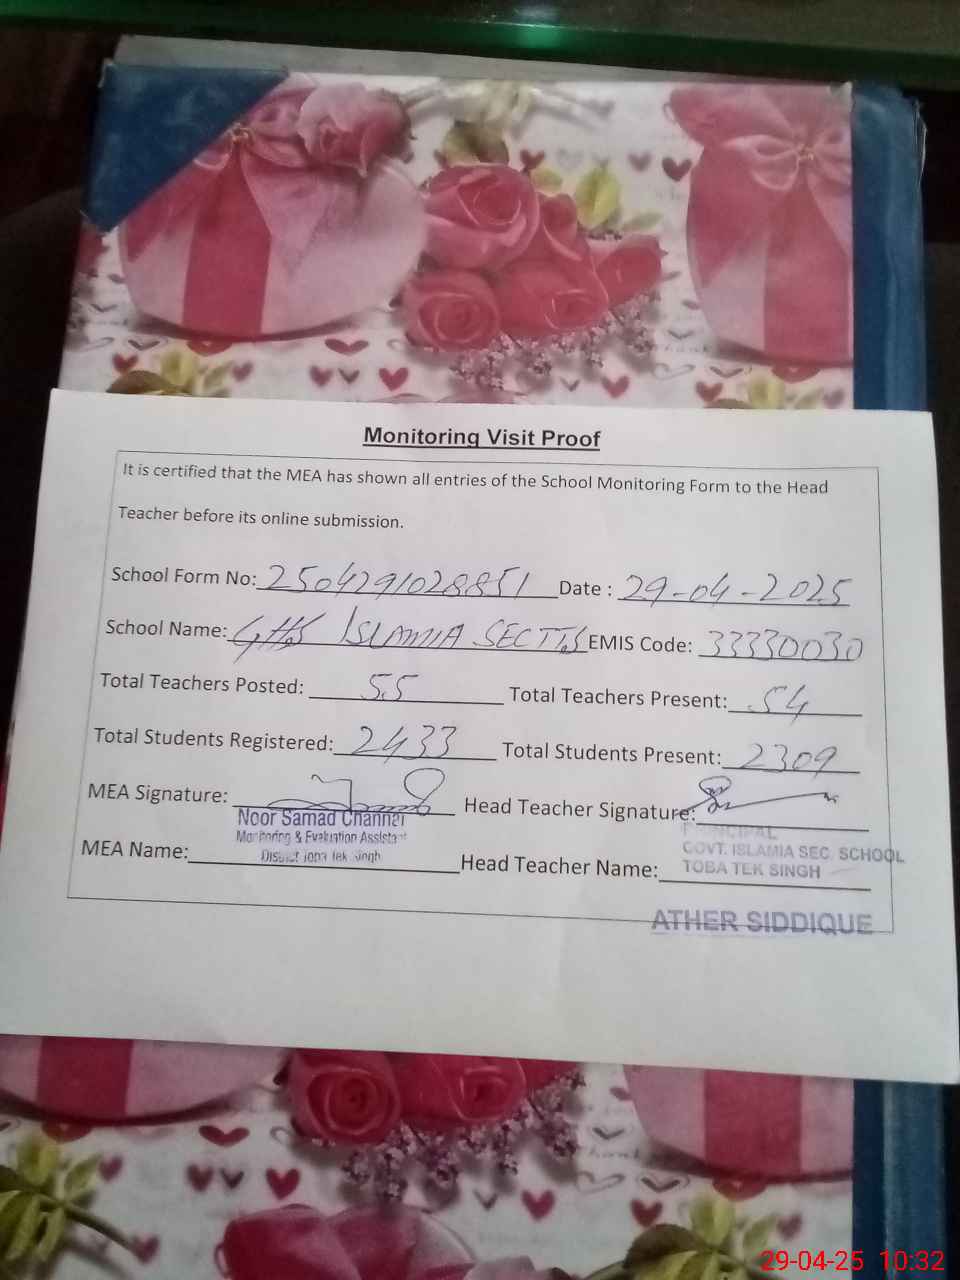 Monitoring Visit Proof
It is certified that the MEA has shown all entries of the School Monitoring Form to the Head
Teacher before its online submission.
School Form No: 2504291028851 Date : 29-04-2025
School Name: GHS ISLAMIA SEC TTS EMIS Code: 33330030
Total Teachers Posted: 55 Total Teachers Present: 54
Total Students Registered: 2433 Total Students Present: 2309
MEA Signature: Head Teacher Signature:
Noor Samad Channar
Monitoring & Evaluation Assistant
District Toba Tek Singh
PRINCIPAL
GOVT. ISLAMIA SEC. SCHOOL
TOBA TEK SINGH
MEA Name: Head Teacher Name:
ATHER SIDDIQUE
29-04-25 10:32